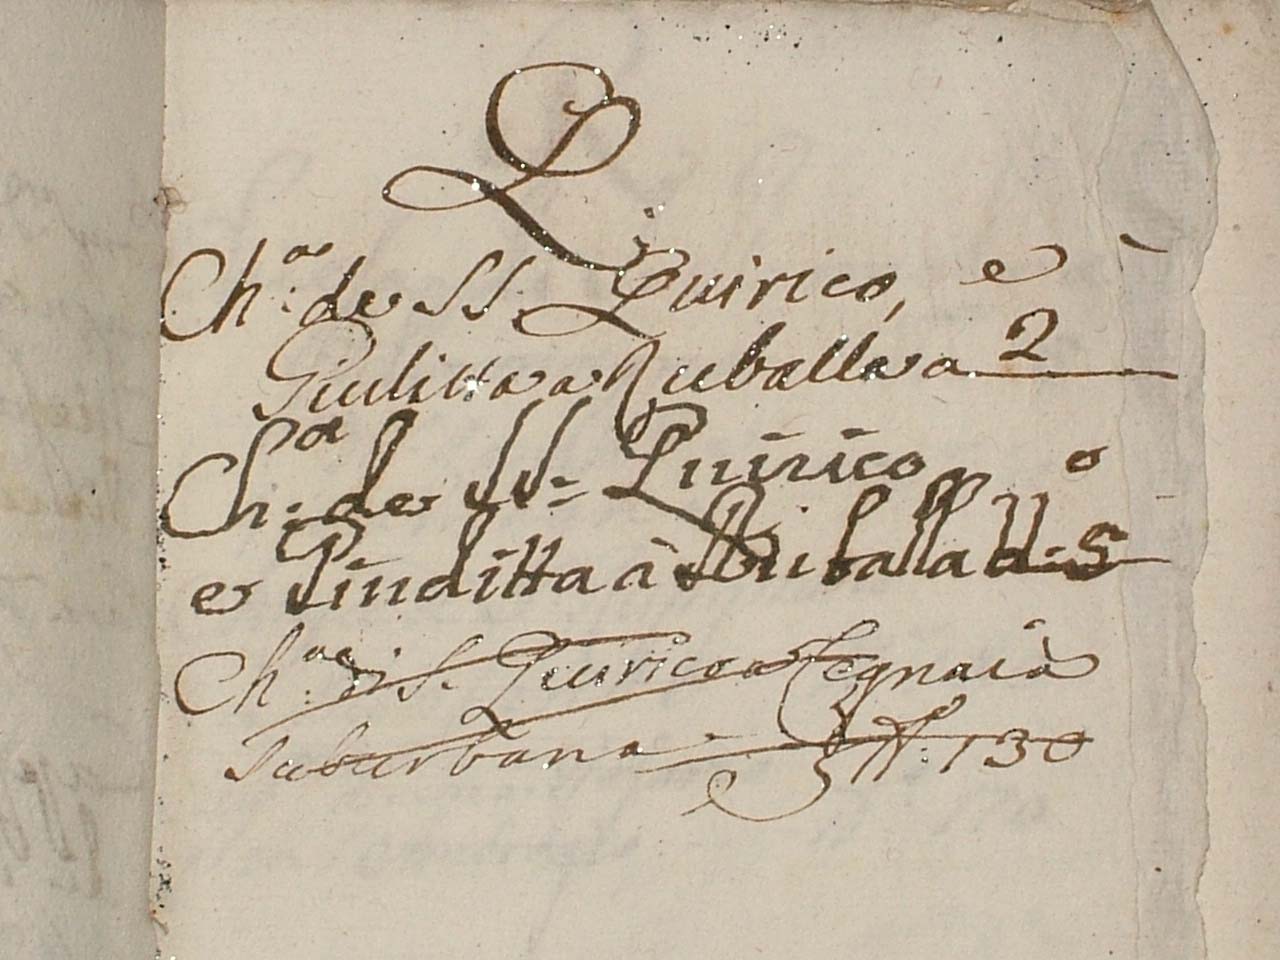 Q
Ch:a de SS. Quirico, e
Giulitta a Ruballa a 2
Ch:a de SS. Quirico
e Giuditta à Ruballa 5
Ch:a di S. Quirico a Legnaia
Suburbana 130